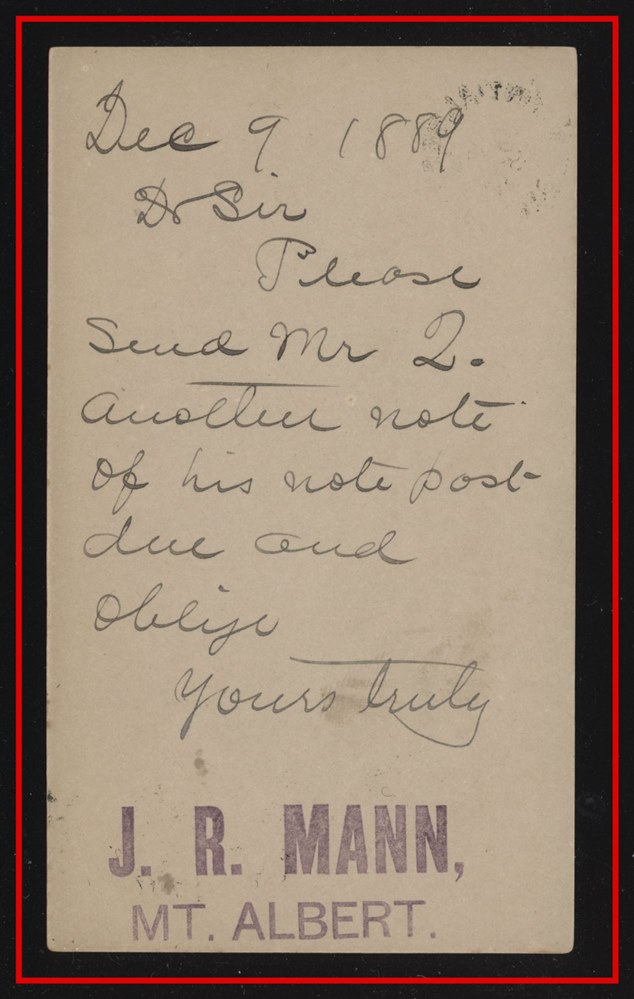 Dec 9 1889
Dr Sir
Please
Send Mr Q.
another note
of his note past
due and
oblige
Yours truly
J. R. MANN,
MT. ALBERT.